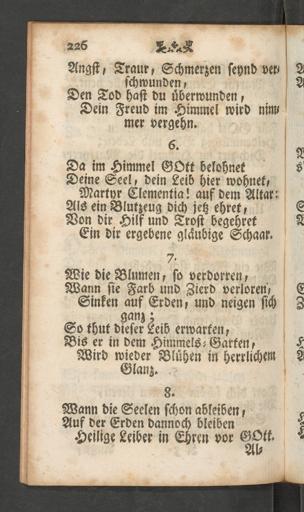 226
Angst, Traur, Schmerzen seynd ver-
schwunden,
Den Tod hast du überwunden,
Dein Freud im Himmel wird nim-
mer vergehn.
6.
Da im Himmel GOtt belohnet
Deine Seel, dein Leib hier wohnet,
Martyr Clementia! auf dem Altar:
Als ein Blutzeug dich jetz ehret,
Von dir Hilf und Trost begehret
Ein dir ergebene gläubige Schaar.
7.
Wie die Blumen, so verdorren,
Wann sie Farb und Zierd verloren,
Sinken auf Erden, und neigen sich
ganz;
So thut dieser Leib erwarten,
Bis er in dem Himmels-Garten,
Wird wieder Blühen in herrlichem
Glanz.
8.
Wann die Seelen schon ableiben,
Auf der Erden dannoch bleiben
Heilige Leiber in Ehren vor GOtt.
Al-